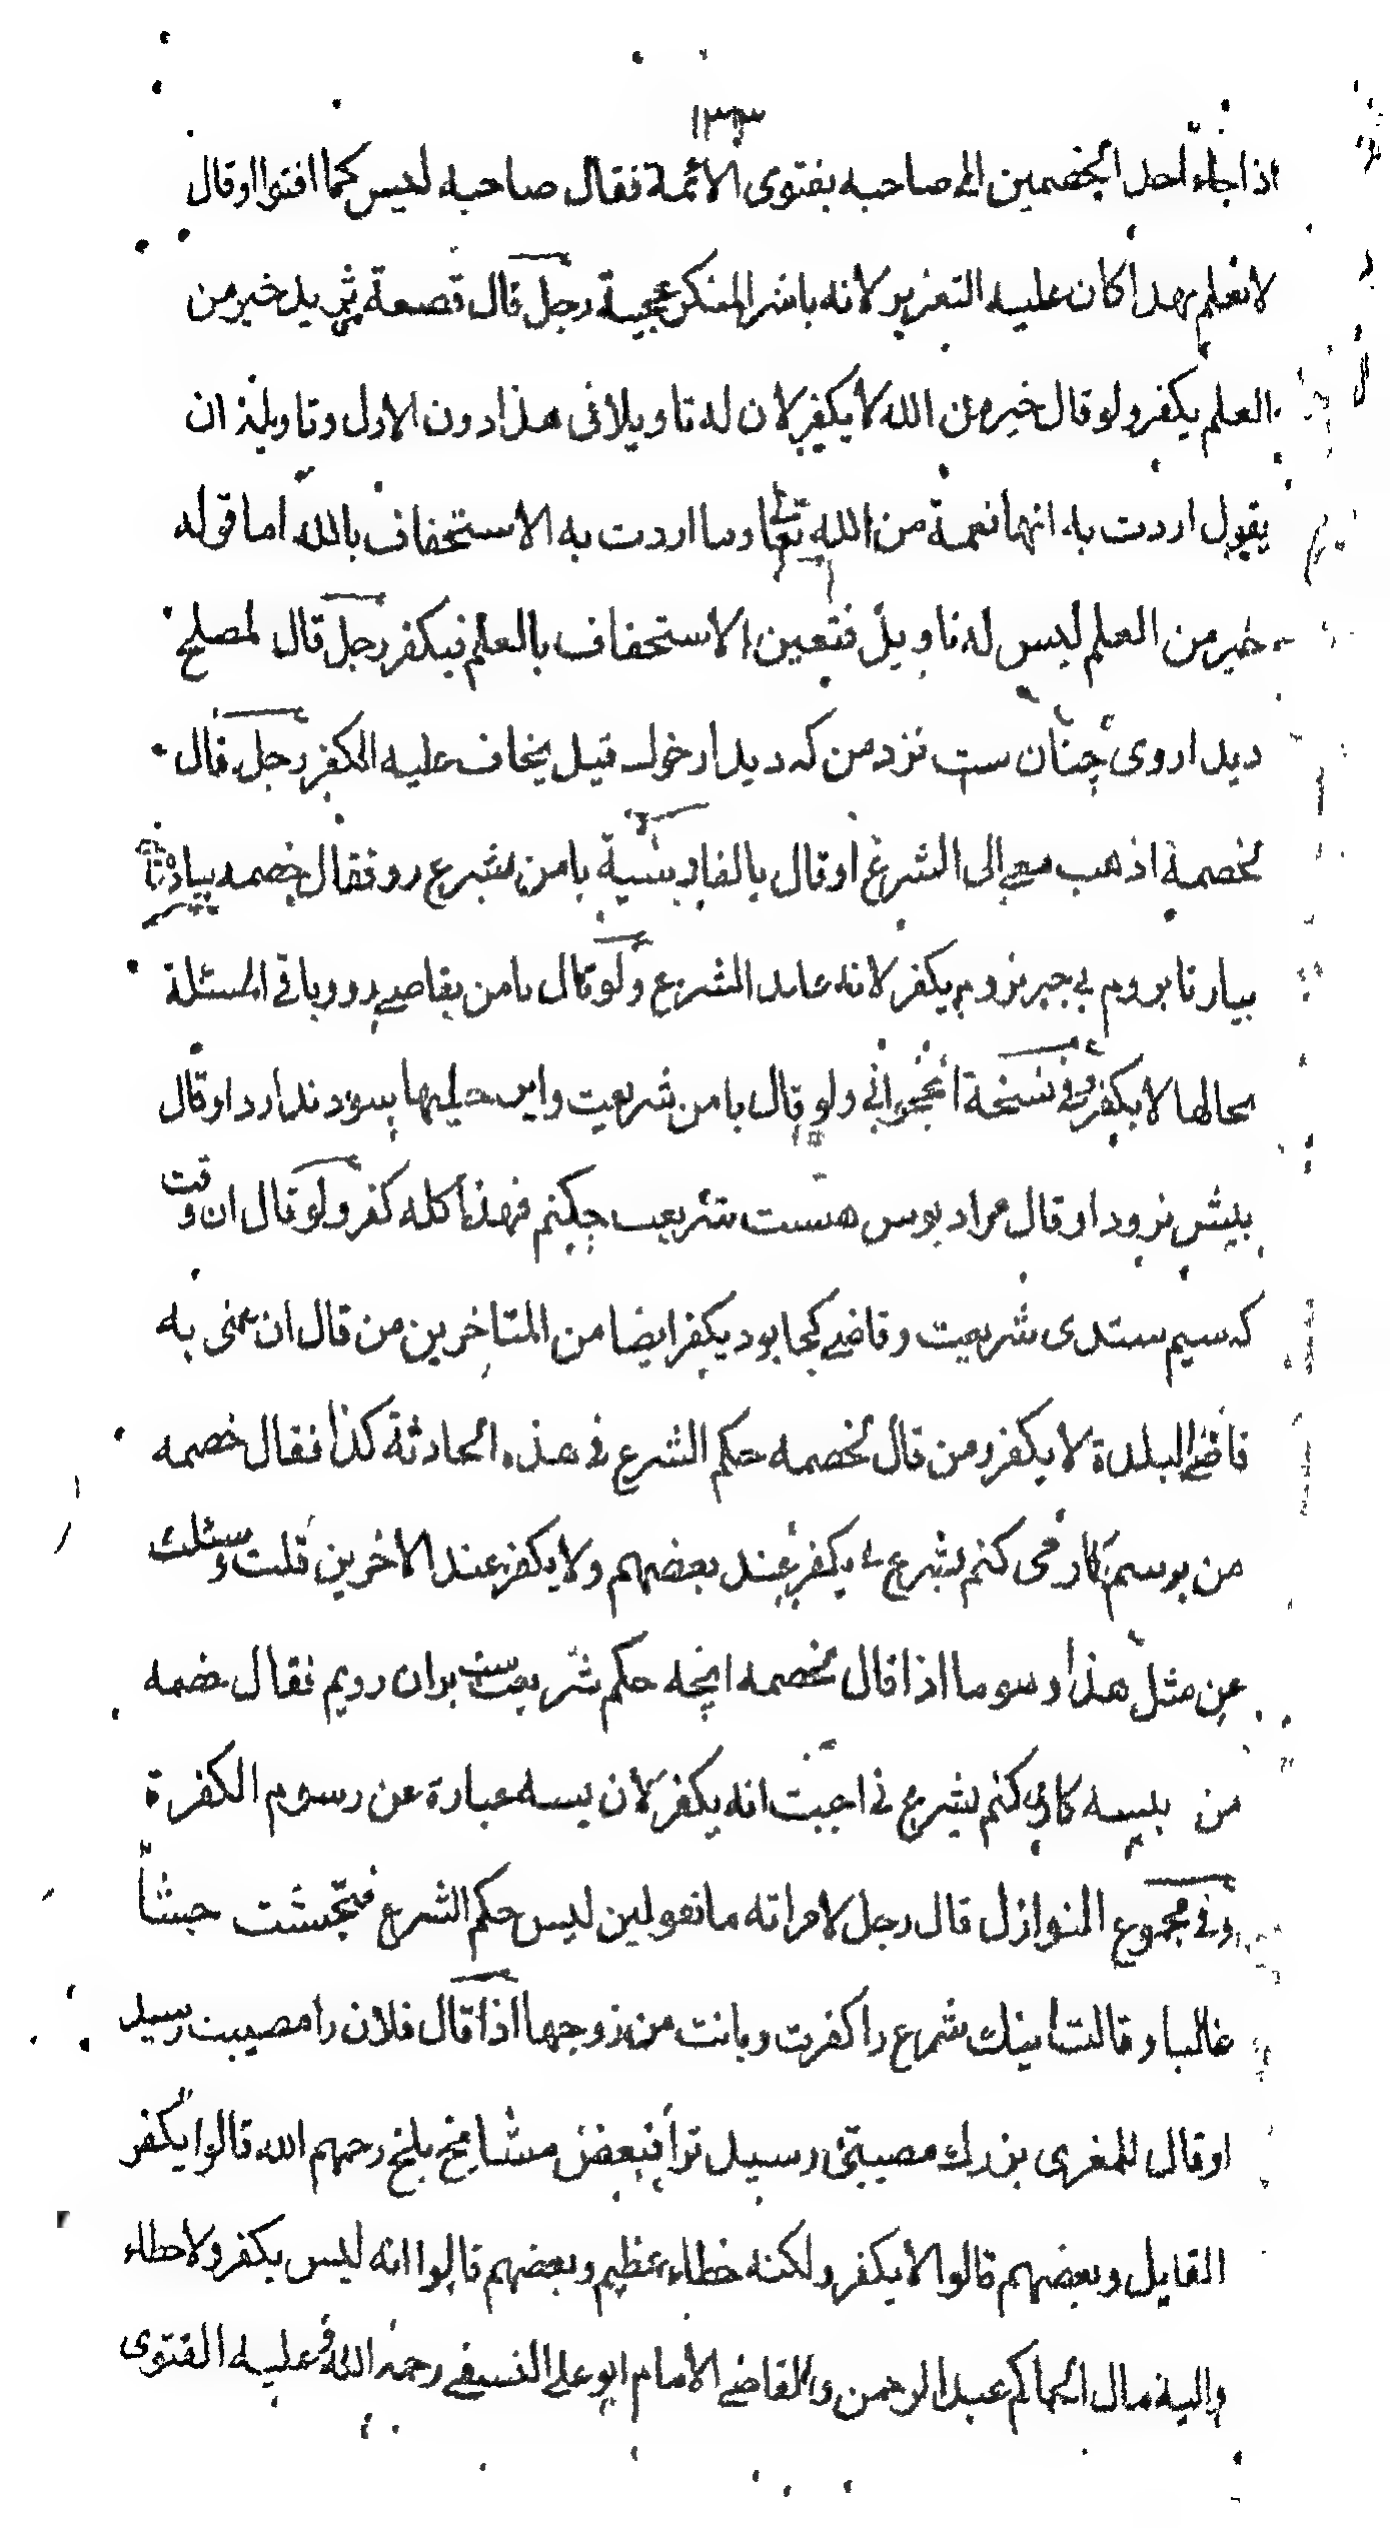 ١٣٣
اذا جاء احد الخصمين الى صاحبه بفتوى الائمة فقال صاحبه ليس كما افتوا او قال
لا نعلم بهذا كان عليه التعزير لانه باشر المنكر عجيبة رجل قال قصعة ثريد خير من
العلم يكفر ولو قال خير من الله لا يكفر لان له تاويلا فى هذا دون الاول وتاويله ان
يقول اردت به انها نعمة من الله تعالى وما اردت به الاستخفاف بالله اما قوله
خير من العلم ليس له تاويل فتعين الاستخفاف بالعلم فيكفر رجل قال لمصلح
ديدار وى چنان ست نزد من كه ديدار خوك قيل يخاف عليه الكفر رجل قال
لخصمه اذهب معى الى الشرع او قال بالفارسية با من بشرع رو فقال خصمه پياده
بيار تا بروم بى جبر نروم يكفر لانه عاند الشرع ولو قال با من بقاضى رو وباقى المسئلة
بحالها لا يكفر وفى نسخة ولو قال با من شريعت واين حيلهها سود ندارد او قال
پيش نرود او قال مراد بوس هست شريعت چكنم فهذا كله كفر ولو قال ان وقت
كه سيم ستدى شريعت وقاضى كجا بود يكفر ايضا من المتاخرين من قال ان عنى به
قاضى البلدة لا يكفر ومن قال لخصمه حكم الشرع فى هذه الحادثة كذا فقال خصمه
من برسم كار مى كنم بشرع نى يكفر عند بعضهم ولا يكفر عند الاخرين قلت وسئلت
عن مثل هذا رسوما اذا قال لخصمه انچه حكم شريعت ست بران رويم فقال خصمه
من بيسه كار مى كنم بشرع نى اجبت انه يكفر لان يسه عبارة عن رسوم الكفرة
وفى مجموع النوازل قال رجل لامراته ما تقولين ليس حكم الشرع فتجشت جشأ
غالبا وقالت اينك شرع را كفرت وبانت من زوجها اذا قال فلان را مصيبت رسيد
او قال للمغرى بزرك مصيبتى رسيد ترا فبعض مشايخ بلخ رحمهم الله قالوا يكفر
القايل وبعضهم قالوا لا يكفر ولكنه خطاء عظيم وبعضهم قالوا انه ليس بكفر ولا خطاء
واليه مال الحاكم عبد الرحمن والقاضى الامام ابو على النسفى رحمه الله وعليه الفتوى